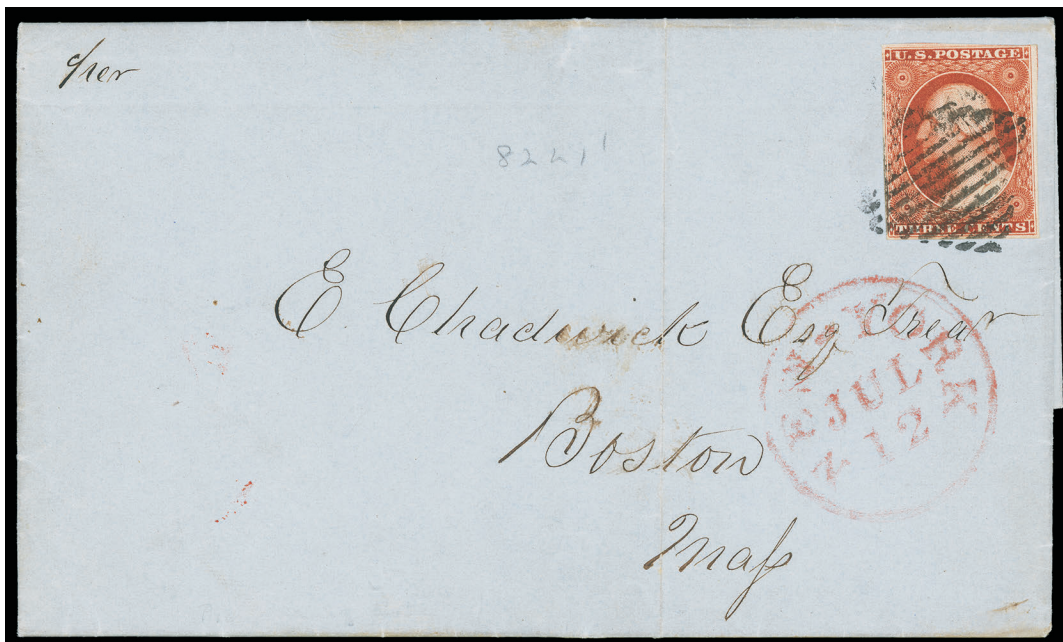 U.S. POSTAGE
THREE CENTS
per
8221'
E Chadwick Esq Treas
Boston
Mass
NEW-YORK
JUL
12